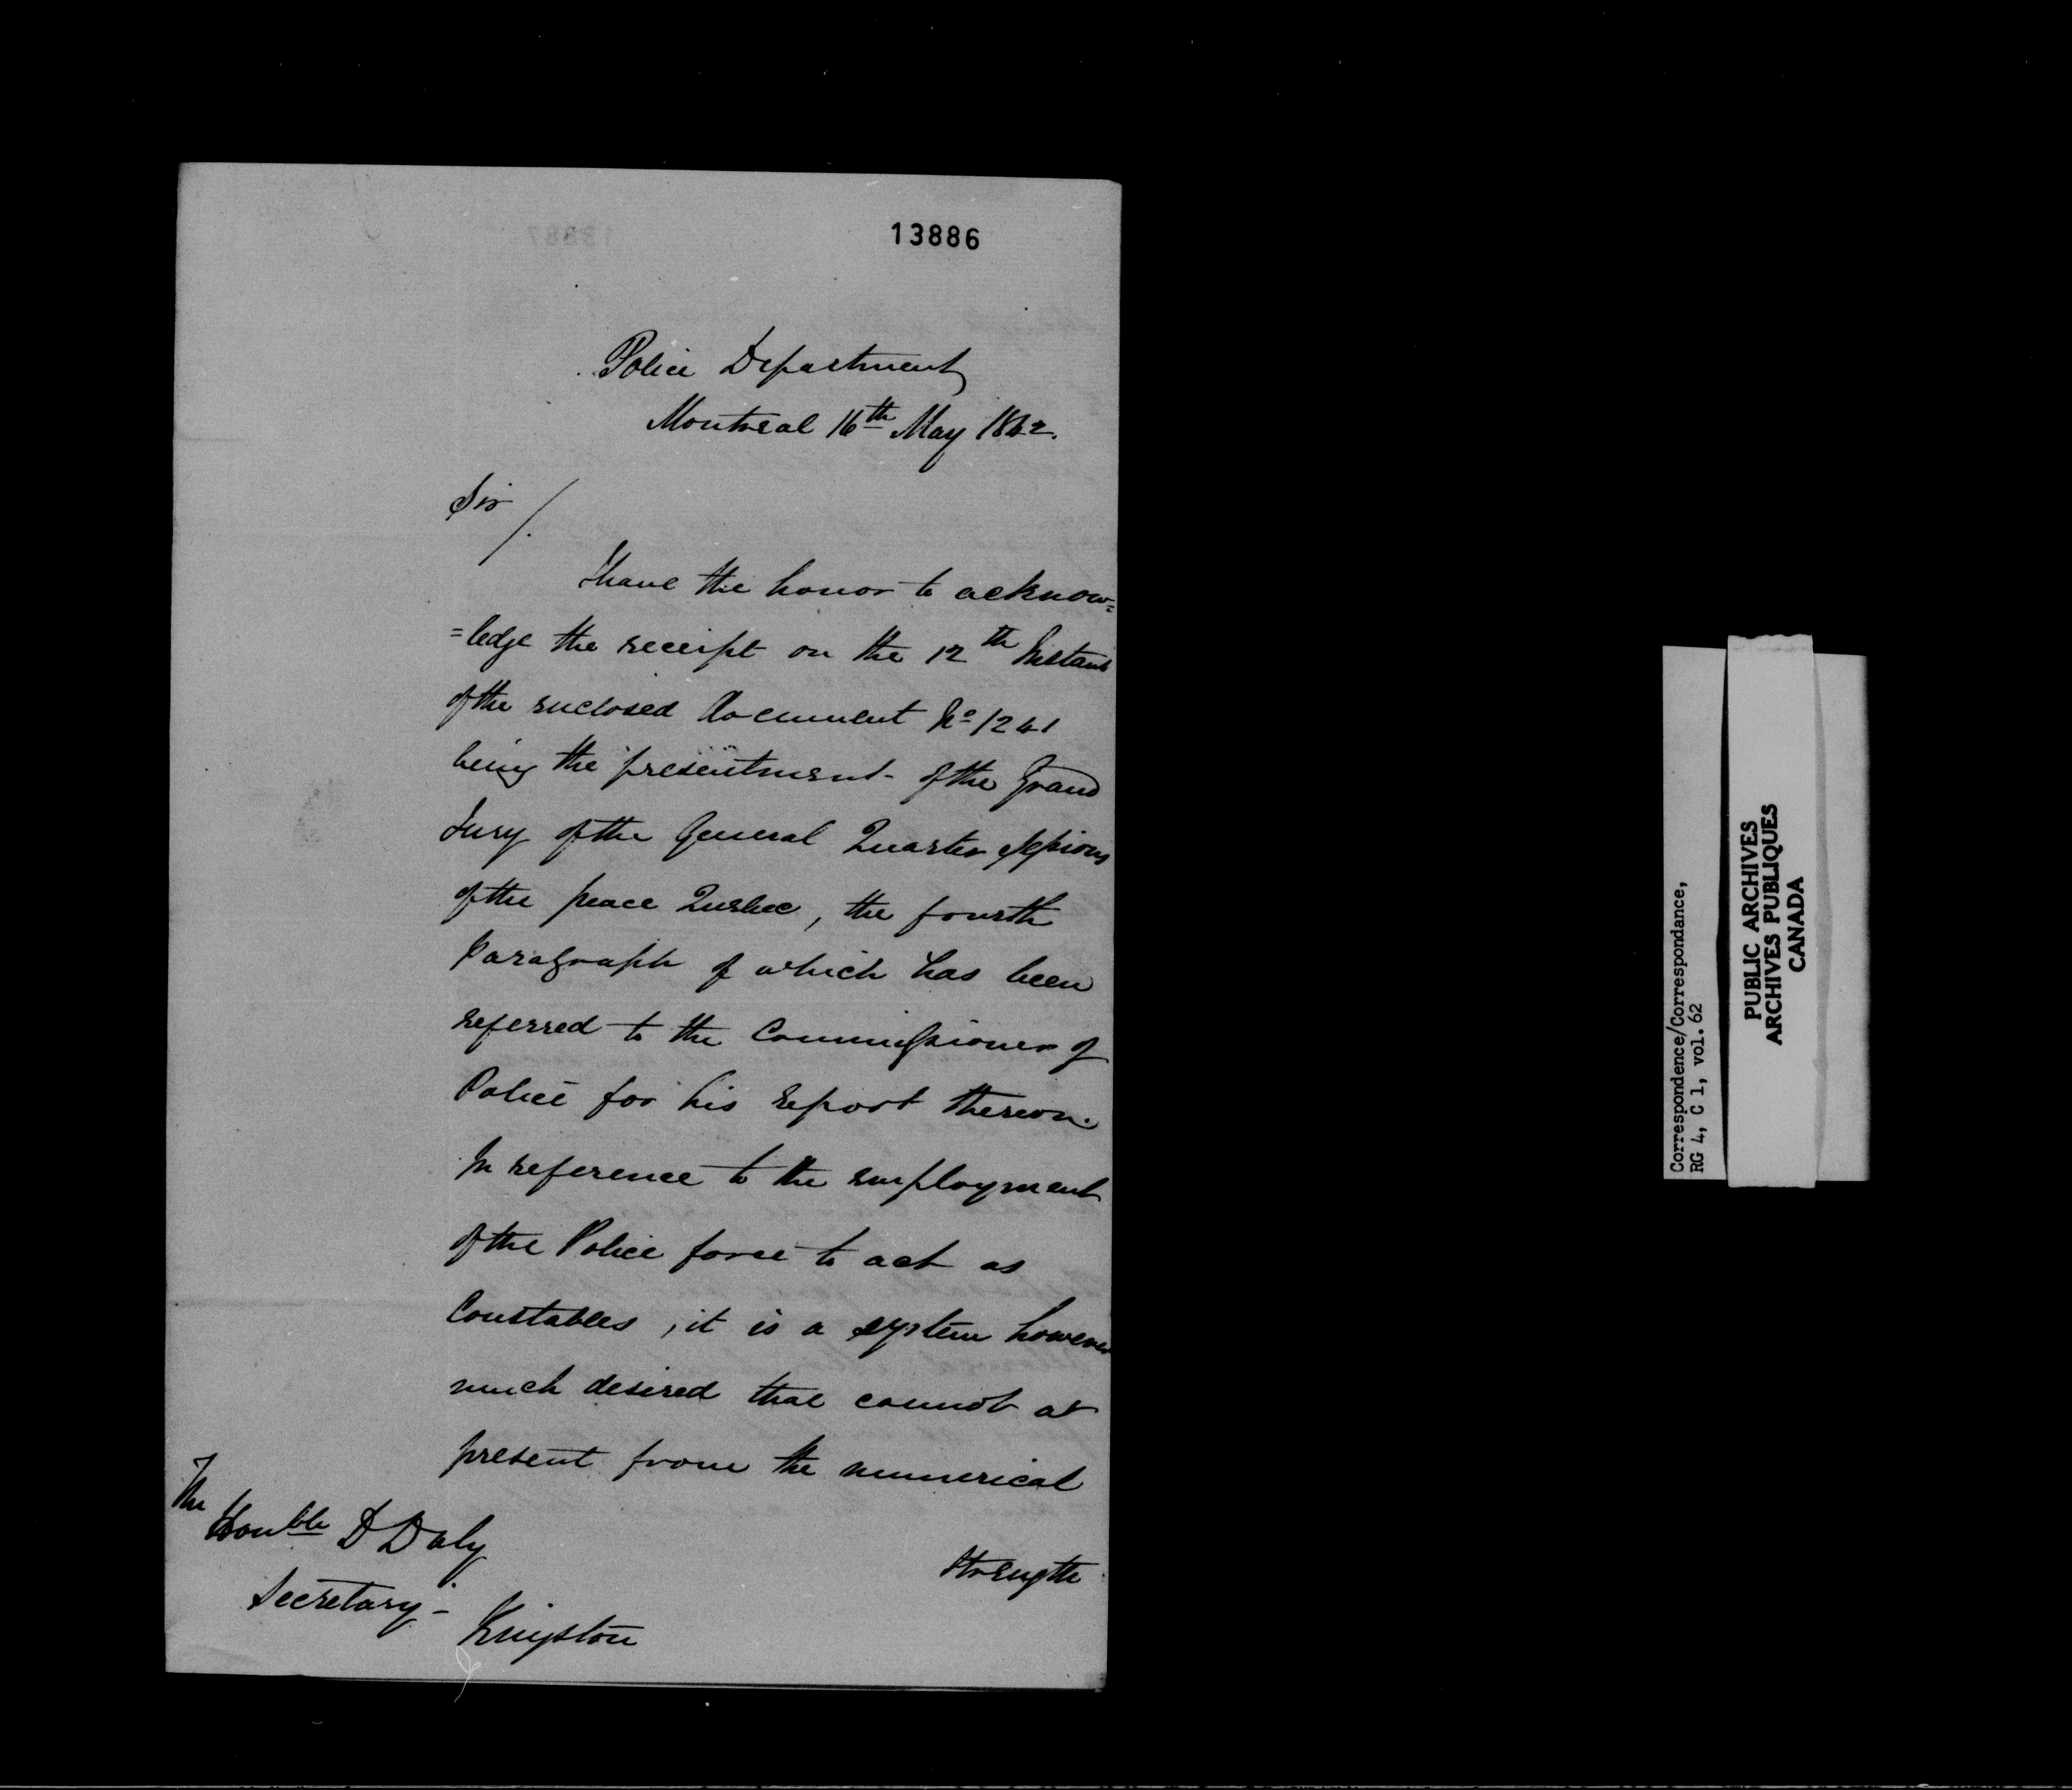 13886
Police Department
Montreal 16th May 1842.
Sir /.
I have the honor to acknow=
=ledge the receipt on the 12th Instant
of the enclosed document No 1241
being the presentment of the Grand
Jury of the General Quarter Sessions
of the peace Quebec, the fourth
Paragraph of which has been
referred to the Commissioner of
Police for his report thereon.
In reference to the employment
of the Police force to act as
Constables, it is a system however
much desired that cannot at
present from the numerical
strength
The
Honble D Daly
Secretary-
Kingston
Correspondence/Correspondance,
RG 4, C 1, vol. 62
PUBLIC ARCHIVES
ARCHIVES PUBLIQUES
CANADA